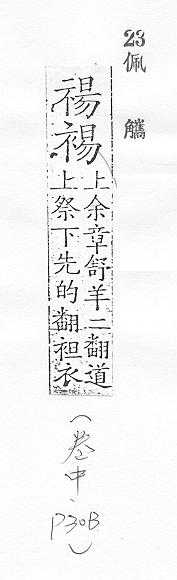 23
佩觿
禓裼
上余章舒羊二翻道
上祭下先的翻袒衣
(卷中、P30B)